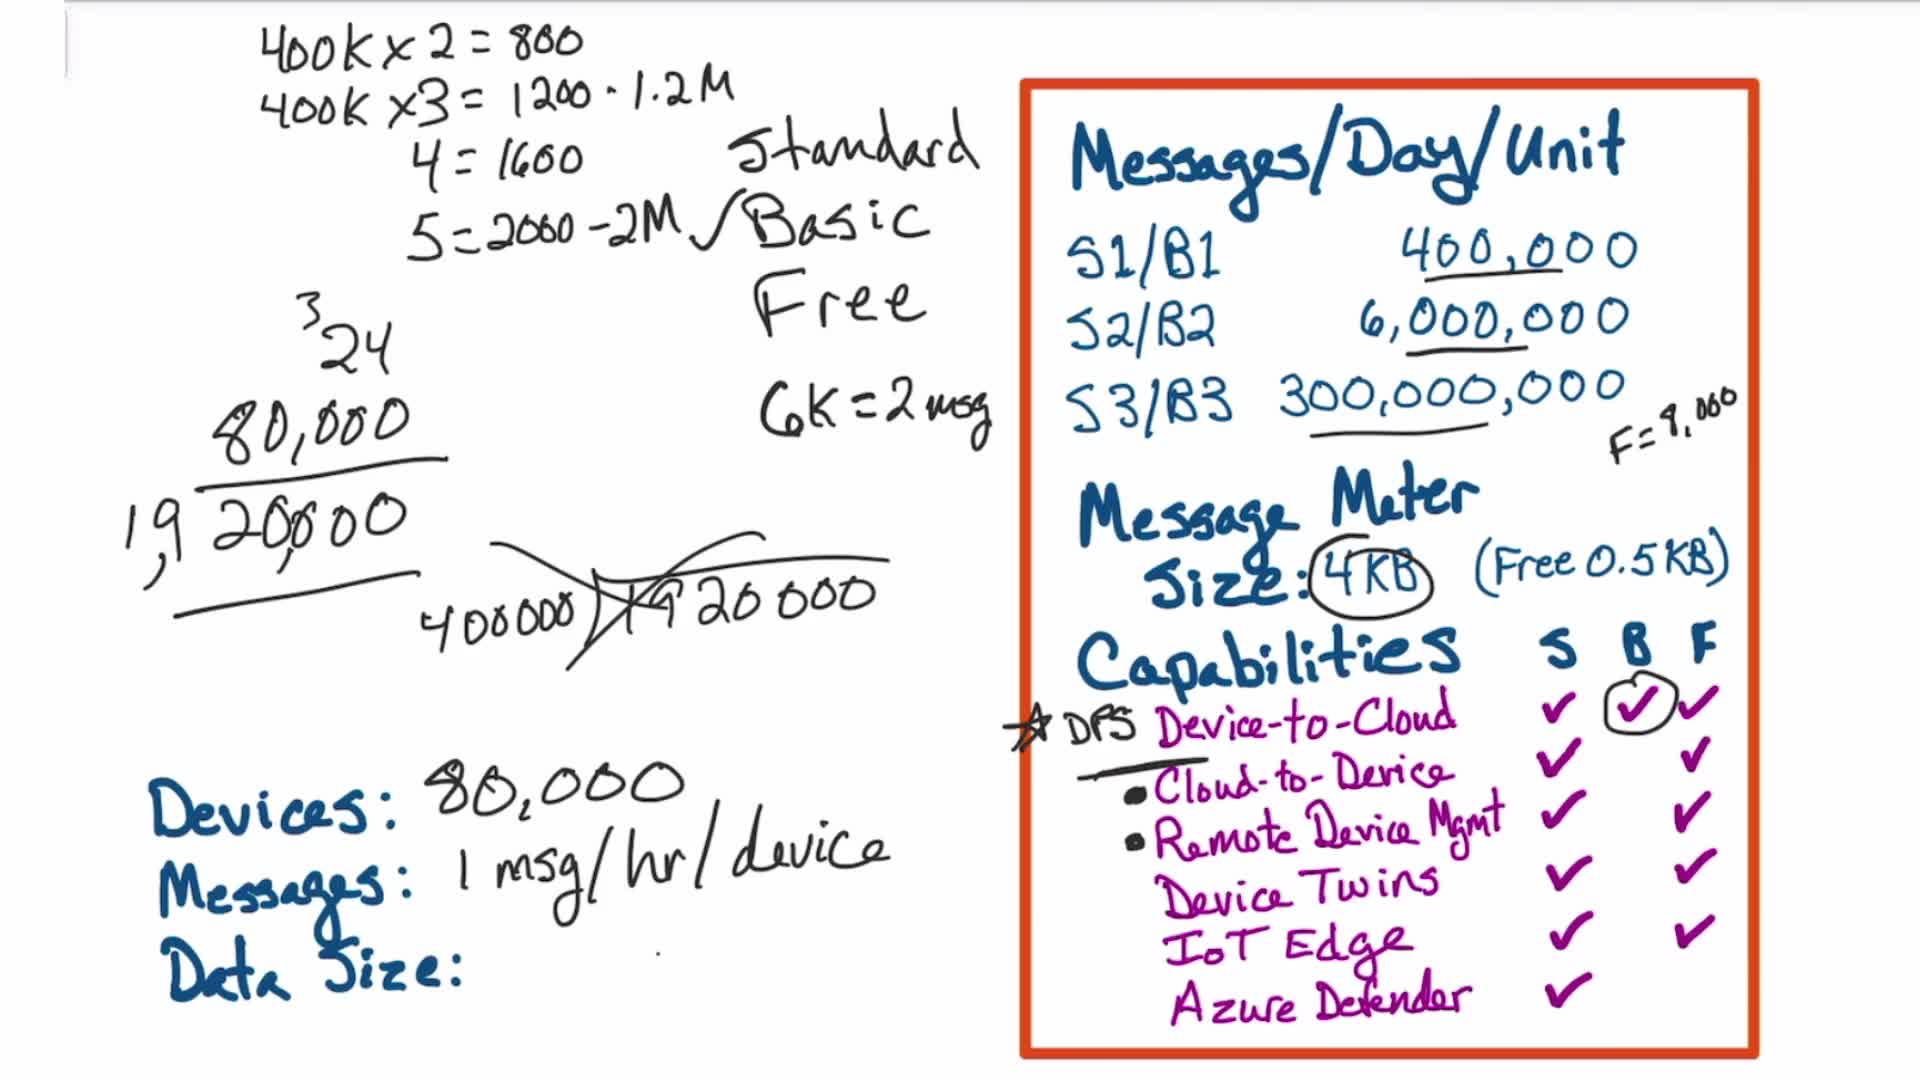 400K x 2 = 800
400K x 3 = 1200 - 1.2M
4 = 1600
5 = 2000 - 2M ✓
Standard
Basic
Free
6K = 2 msg
3
24
80,000
1,920,000
400000)1920000
Devices: 80,000
Messages: 1 msg/hr/device
Data Size:
Messages/Day/Unit
S1/B1 400,000
S2/B2 6,000,000
S3/B3 300,000,000
F = 8,000
Message Meter
Size: 4KB (Free 0.5KB)
Capabilities S B F
☆ DPS Device-to-Cloud ✓ ✓ ✓
• Cloud-to-Device ✓ ✓
• Remote Device Mgmt ✓ ✓
Device Twins ✓ ✓
IoT Edge ✓ ✓
Azure Defender ✓